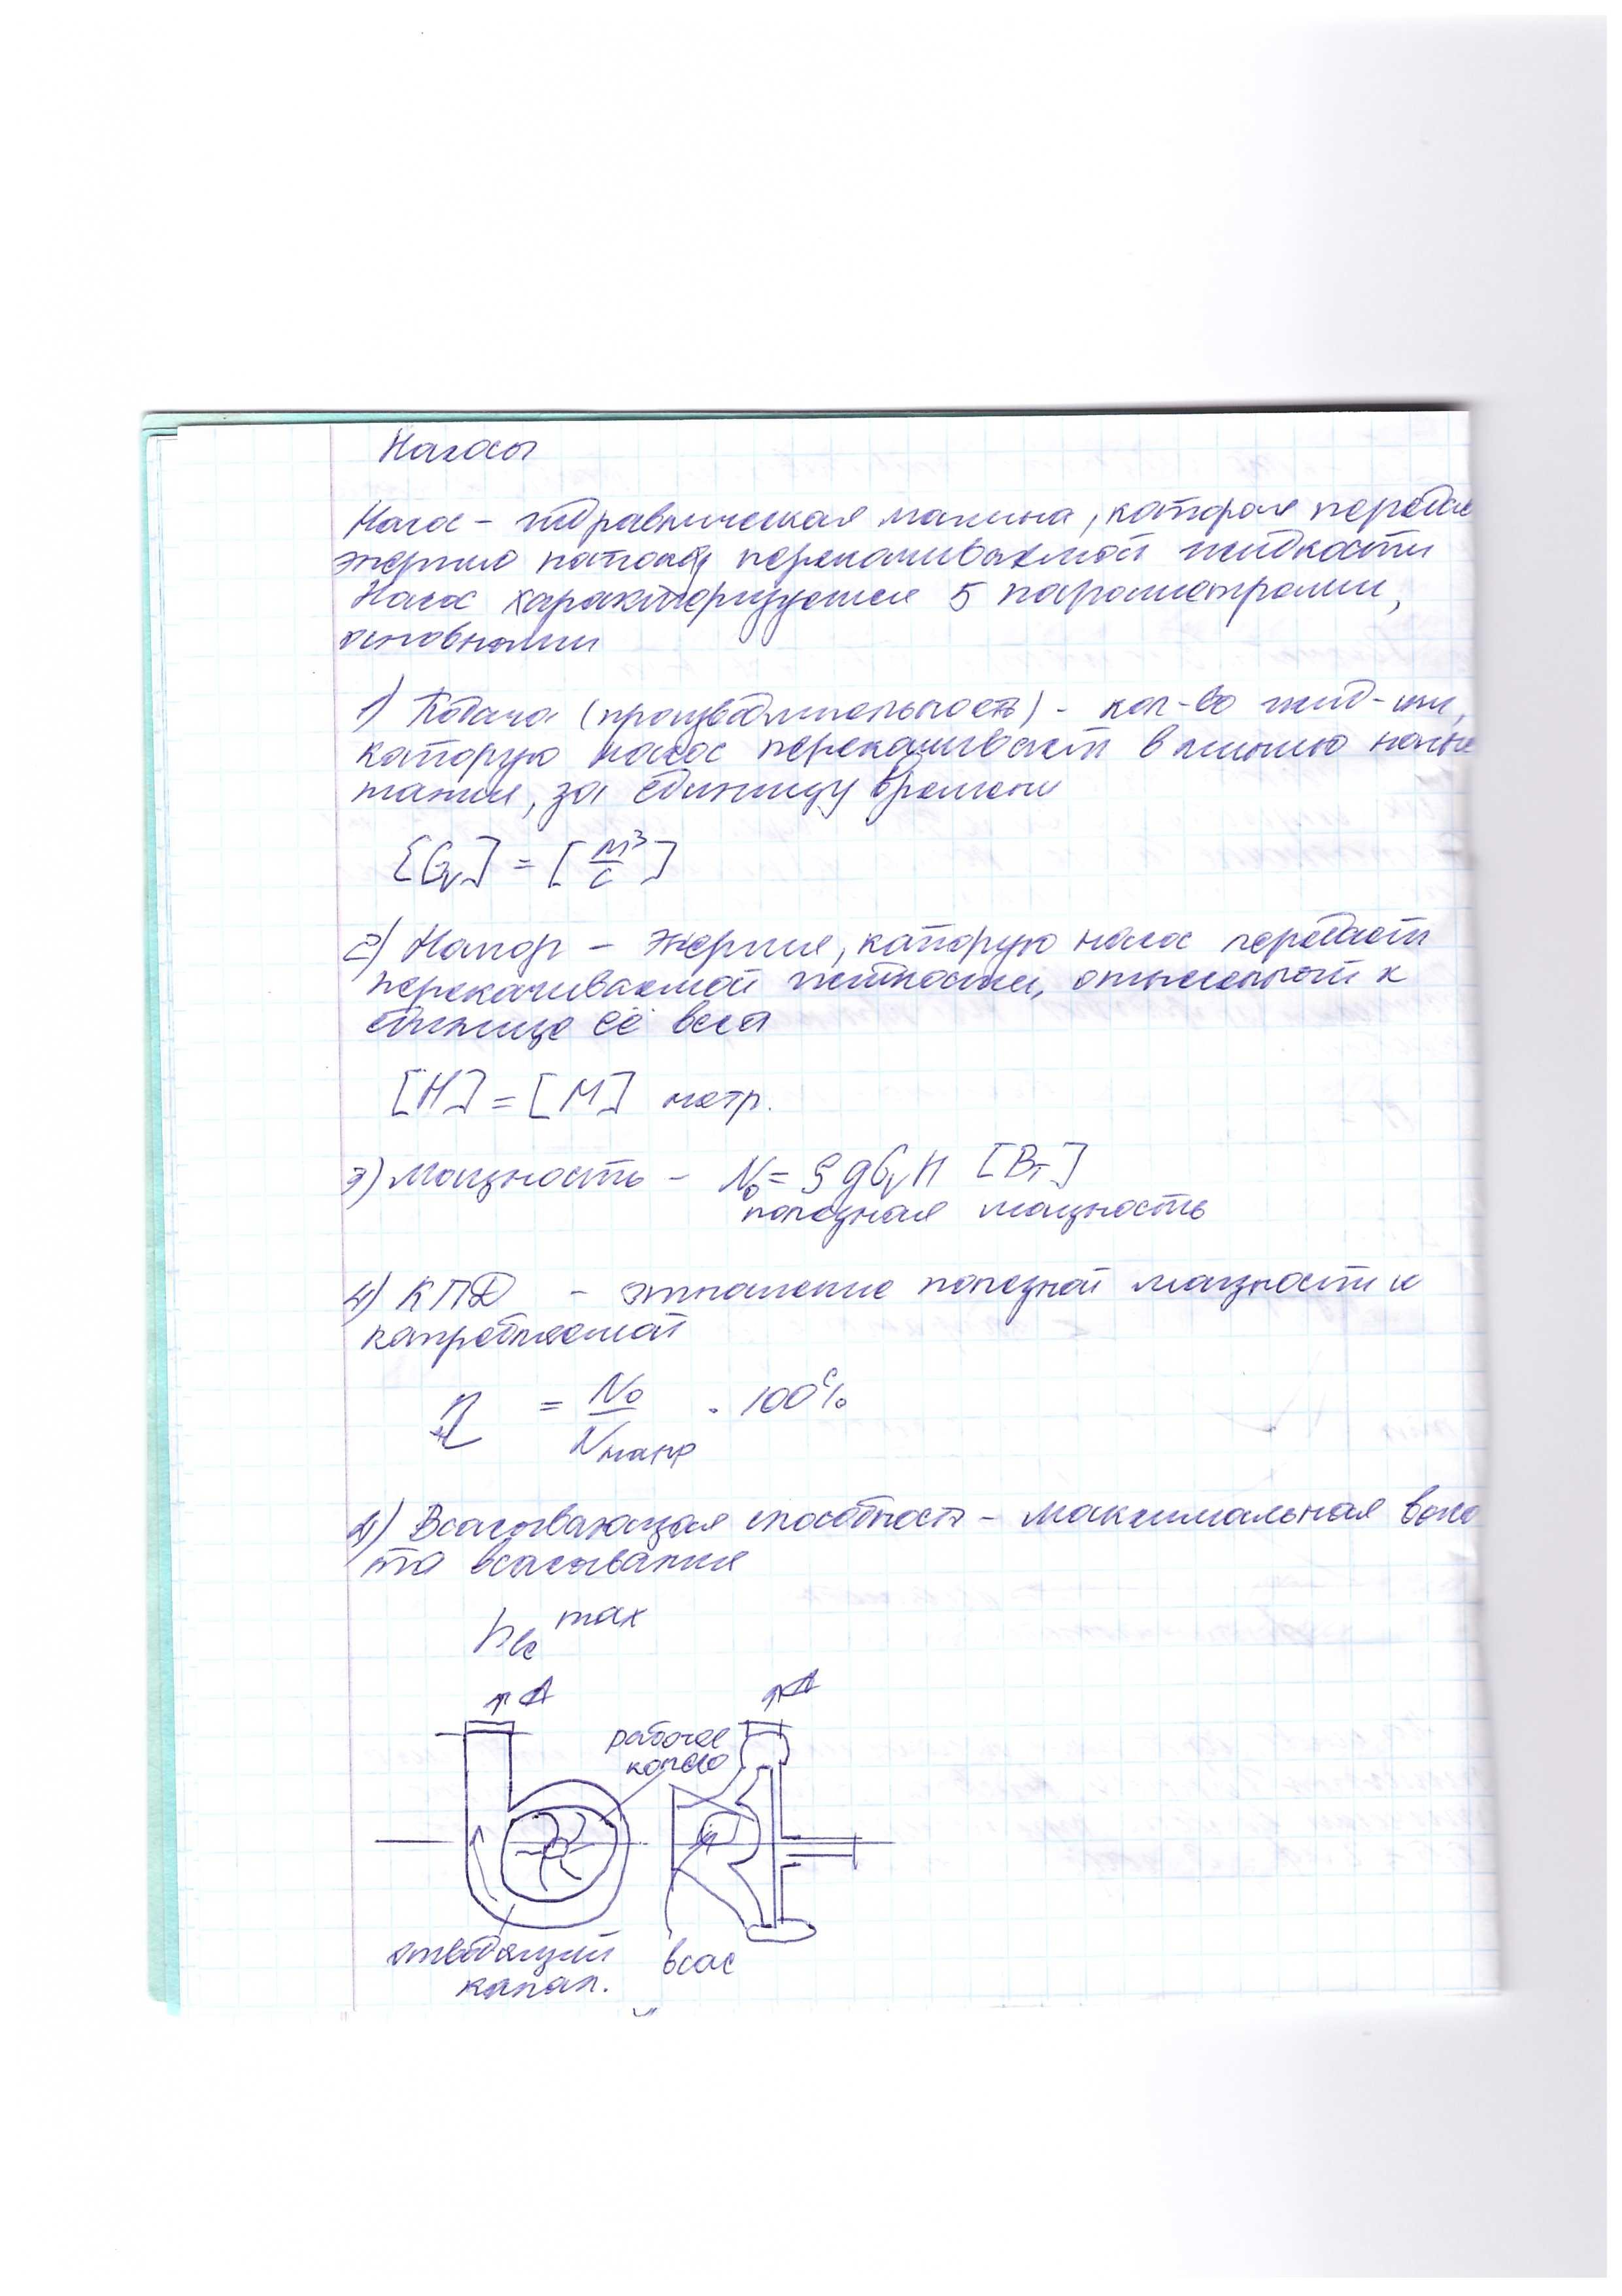 Насосы
Насос – гидравлическая машина, которая передае
энергию потоку перекачиваемой жидкости
Насос характеризуется 5 параметрами,
основными
1) Подача (производительность) – кол-во жид-ти,
которую насос перекачивает в линию нагне
тания, за единицу времени
[Gv] = [м³/с]
2) Напор – энергия, которую насос передаёт
перекачиваемой жидкости, отнесенный к
единице её веса
[H] = [М] метр.
3) Мощность – N₀ = ρgGvH [Вт]
полезная мощность
4) КПД – отношение полезной мощности к
потребляемой
η = N₀/Nпотр · 100%
5) Всасывающая способность – максимальная высо
та всасывания
hвс max
А А
рабочее
колесо
отводящий всас
канал.